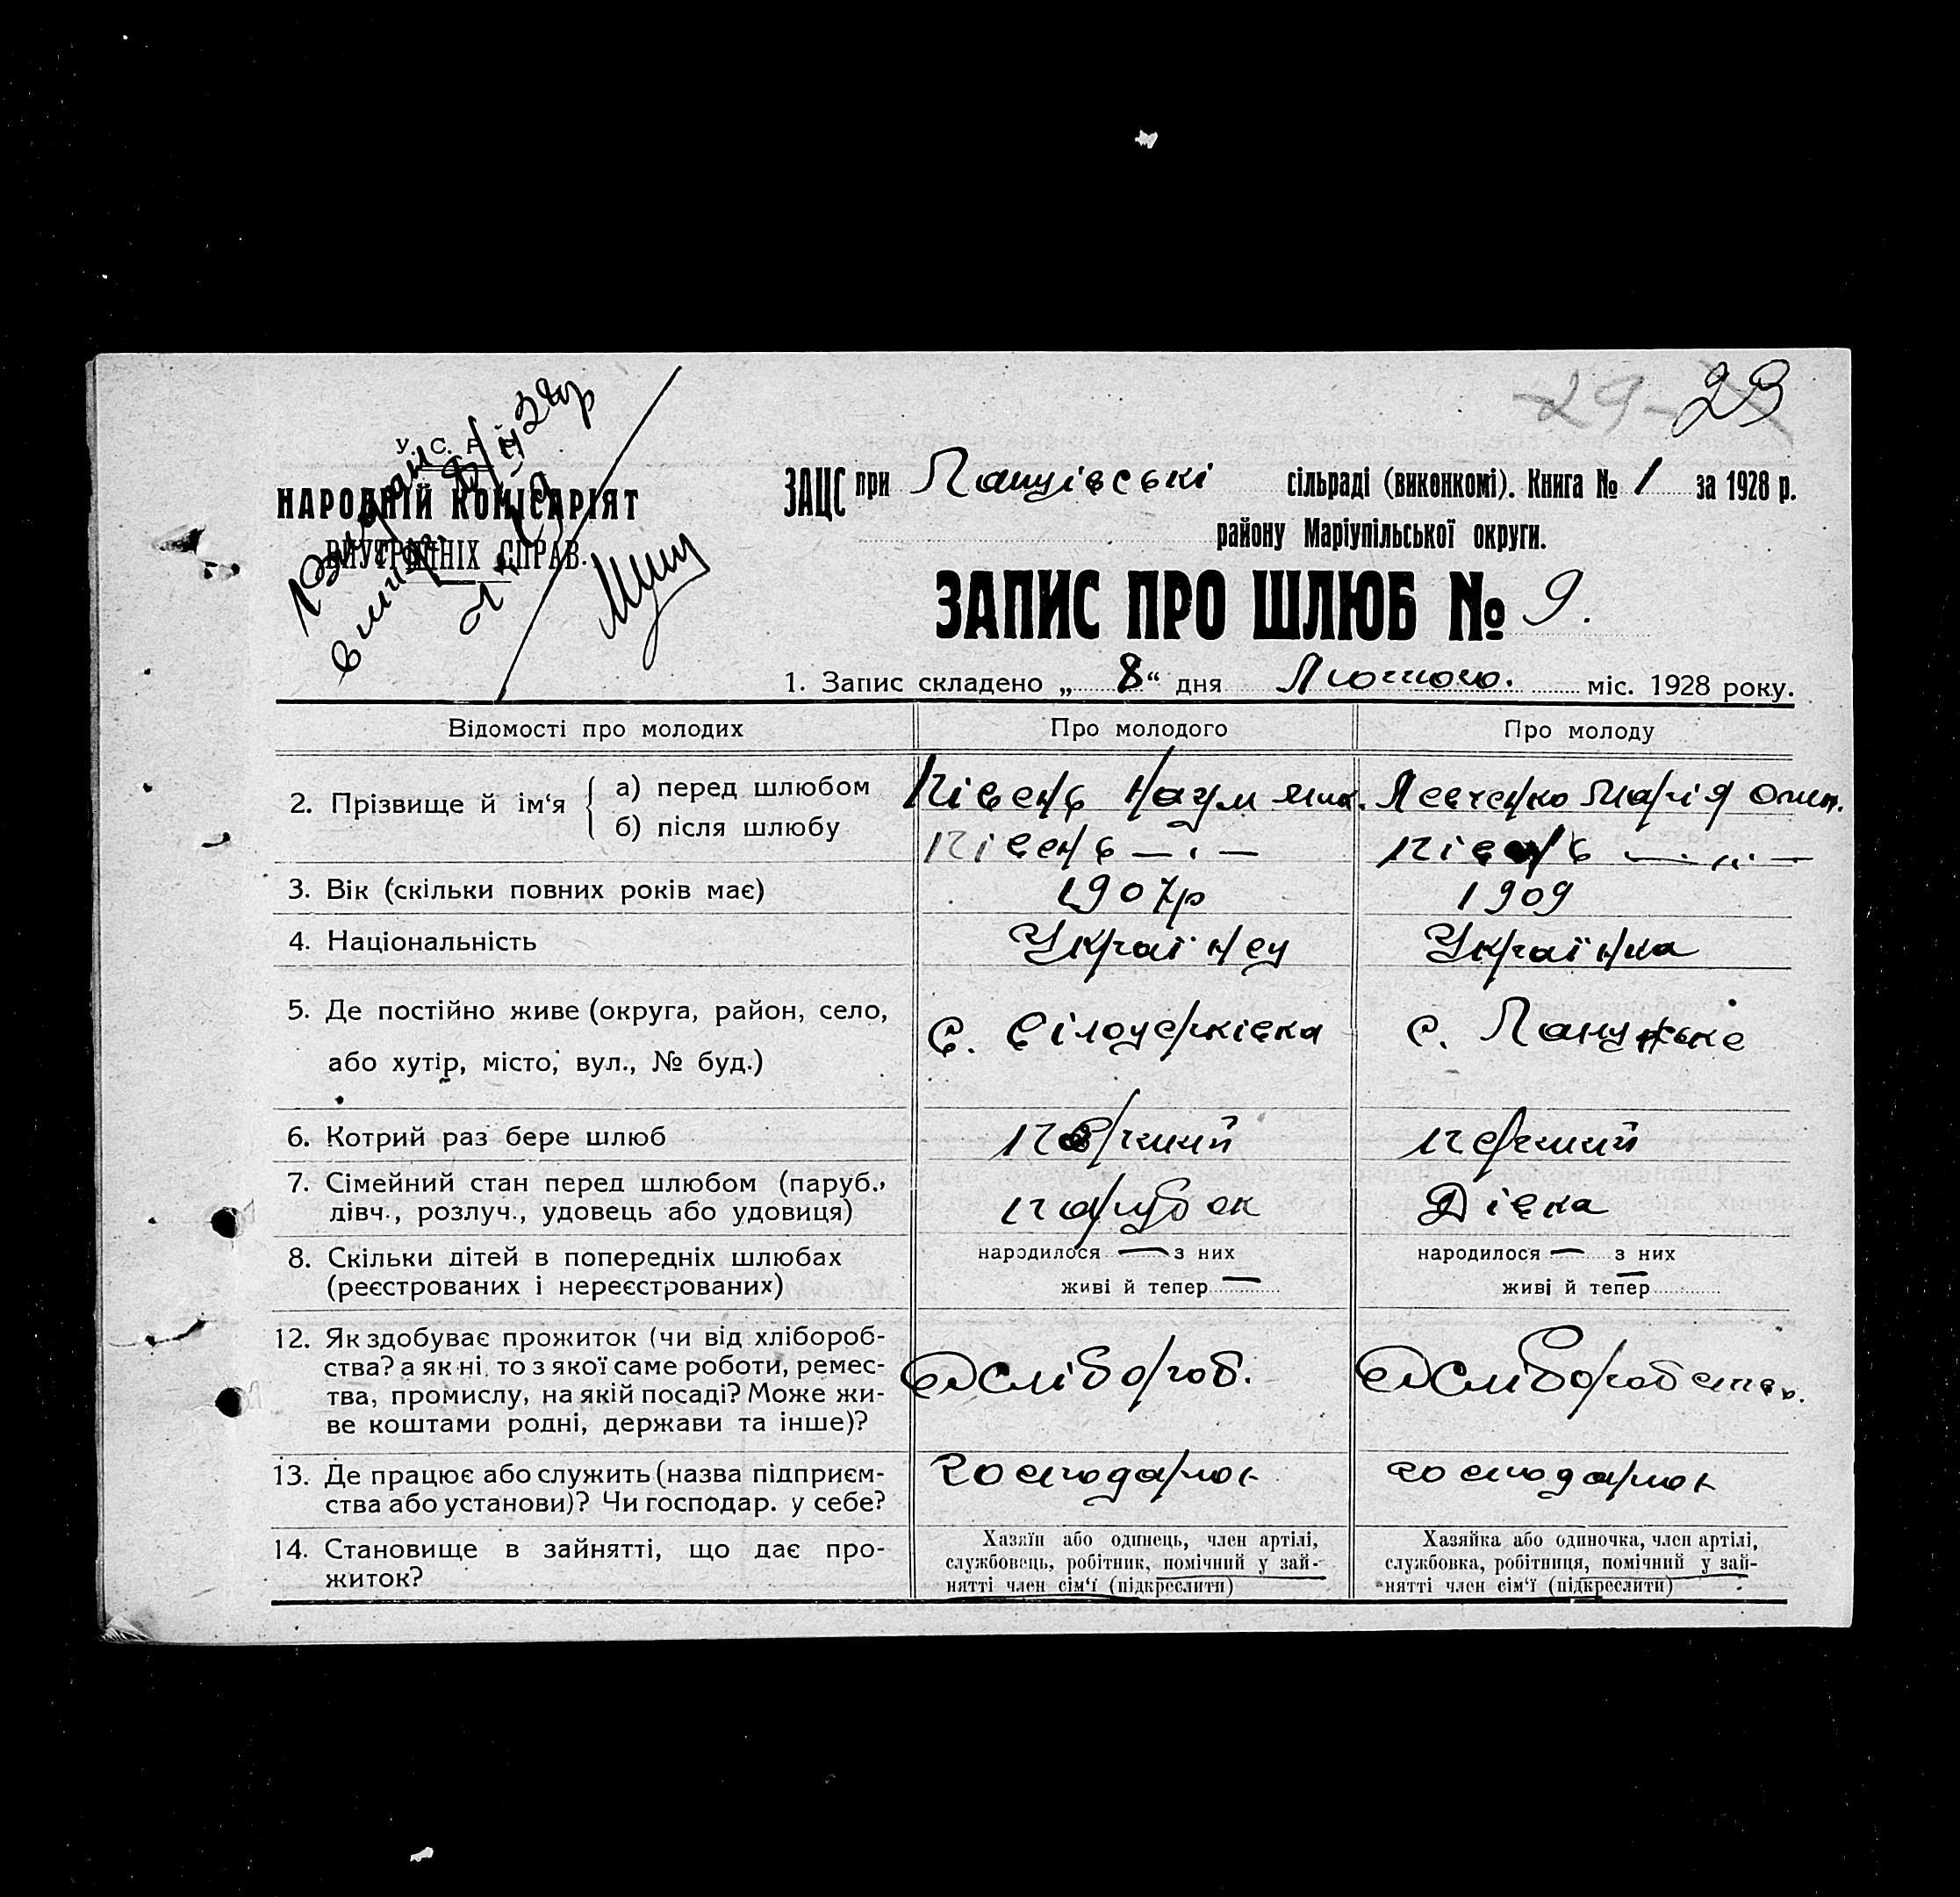 29 23
У.С.Р.Р.
НАРОДНІЙ КОМІСАРІЯТ
ВНУТРІШНІХ СПРАВ.
ЗАЦС при сільраді (виконкомі). Книга № 1 за 1928 р.
району Маріупільської округи.
ЗАПИС ПРО ШЛЮБ № 9.
1. Запис складено „8“ дня Лютого. міс. 1928 року.
Відомості про молодих Про молодого Про молоду
2. Прізвище й ім‘я { а) перед шлюбом Півень Наум Левченко Марія
б) після шлюбу Півень — „ — Півень — „ —
3. Вік (скільки повних років має) 1907р 1909
4. Національність Українец Українка
5. Де постійно живе (округа, район, село, с. Білоцерківка с.
або хутір, місто, вул., № буд.)
6. Котрий раз бере шлюб перший перший
7. Сімейний стан перед шлюбом (паруб., парубок Дівка
дівч., розлуч., удовець або удовиця)
8. Скільки дітей в попередніх шлюбах народилося — з них народилося — з них
(реєстрованих і нереєстрованих) живі й тепер — живі й тепер —
12. Як здобуває прожиток (чи від хлібороб-
ства? а як ні, то з якої саме роботи, ремес- хлібороб.
тва, промислу, на якій посаді? Може жи-
ве коштами родні, держави та інше)?
13. Де працює або служить (назва підприєм-
ства або установи)? Чи господар. у себе?
14. Становище в зайнятті, що дає про-
житок?
Хазяїн або одинець, член артілі,
службовець, робітник, помічний у зай-
нятті член сім‘ї (підкреслити)
Хазяйка або одиночка, член артілі,
службовка, робітниця, помічний у зай-
нятті член сім‘ї (підкреслити)